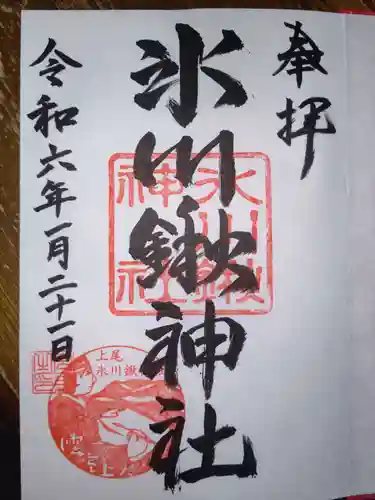 奉拝
氷川鍬神社
令和六年一月二十一日
上尾
氷川鍬